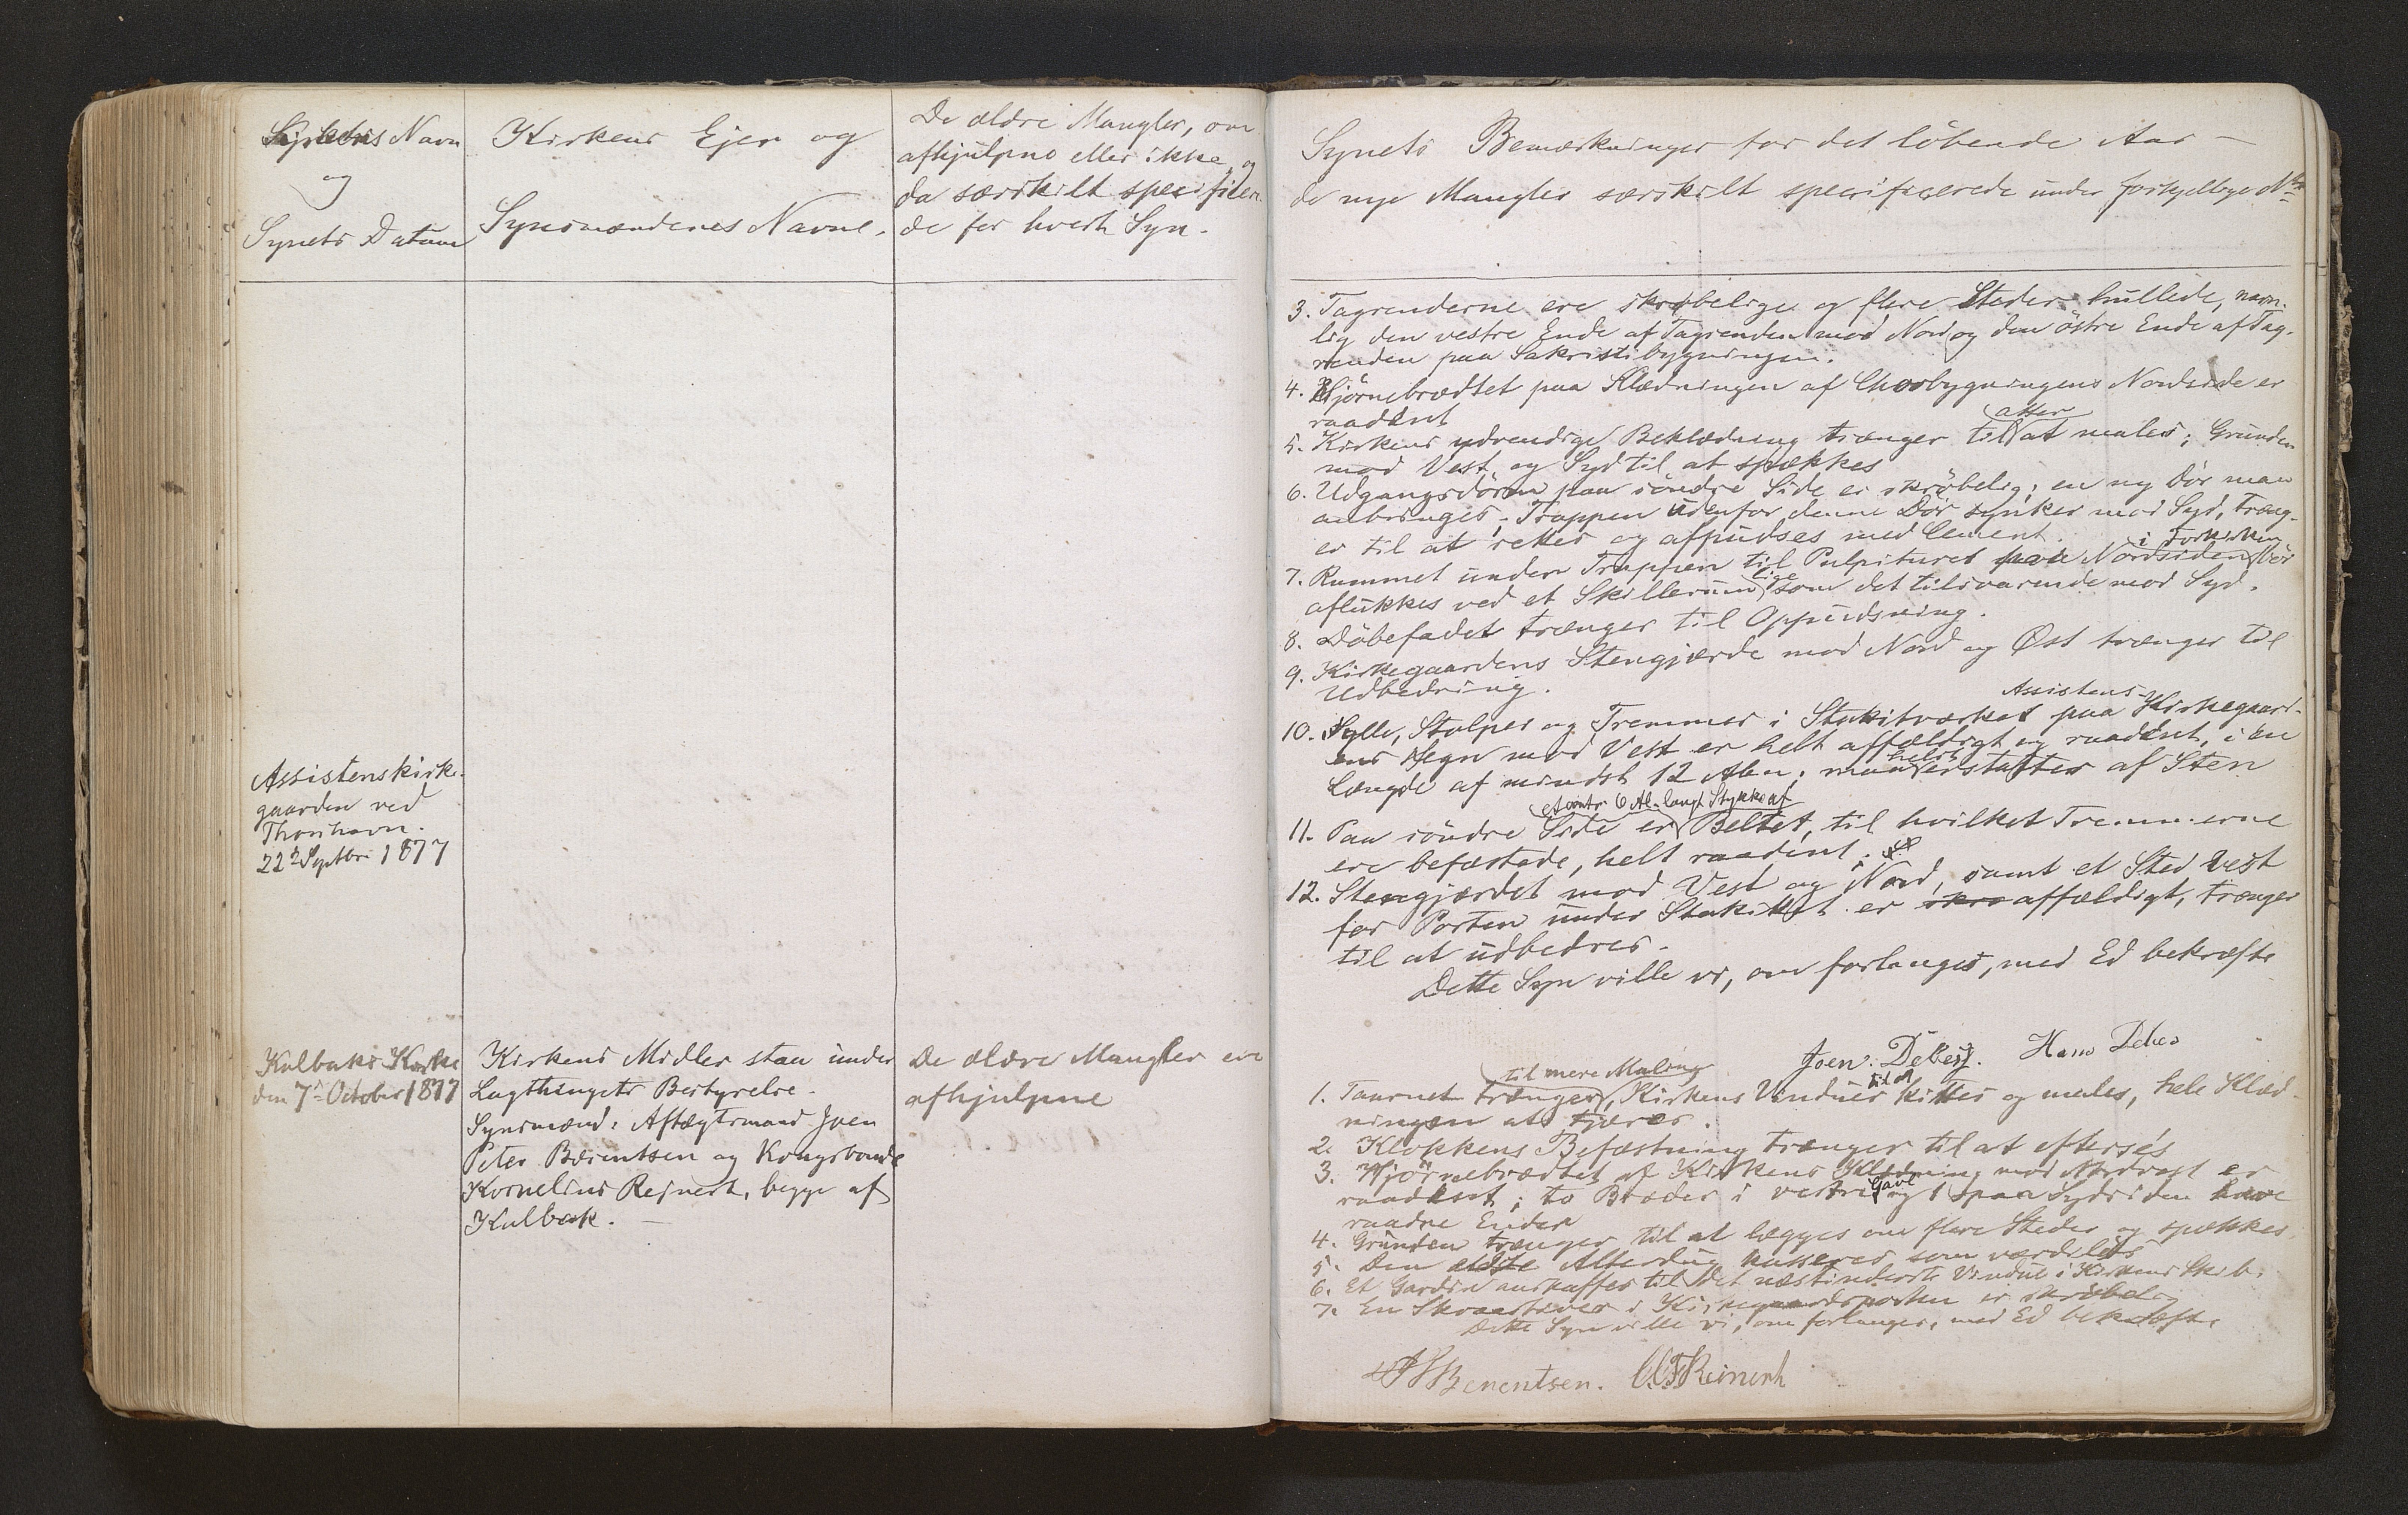 Kirkens Navn
og
Synets Datum
Kirkens Ejer og
Synsmændenes Navne.
De ældre Mangler, om
afhjulpne eller ikke, og
da særskilt specificere-
de for hvert Syn.
Assistenskirke-
gaarden ved
Thorshavn.
22d Septbr 1877
Kalbaks Kirke
den 7de October 1877
Kirkens Midler staa under
Lagthingets Bestyrelse.
Synsmænd: Aftægtsmand Joen
Peter Bærentsen og Kongsbonde
Kornelius Rejnert, begge af
Kalbak.
De ældre Mangler ere
afhjulpne
Synets Bemærkninger for det löbende Aar —
de nye Mangler særskilt specificerede under forskjellige No
3. Tagrenderne ere skrøbelige og flere Steder hullede, navn-
lig den vestre Ende af Tagrenden mod Nord og den östre Ende af Tag-
renden paa Sakristibygningen.
4. Hjörnebrædtet paa Klædningen af Chorbygningens Nordside er
raaddent
5. Kirkens udvendige Beklædning trænger til atter at males; Grunden
mod Vest og Syd til at spækkes
6. Udgangsdören paa söndre Side er skröbelig; en ny Dör maa
anbringes; Trappen udenfor denne Dör synker mod Syd, træng-
er til at rettes og afpudses med Cement.
7. Rummet under Trappen til Pulpituret paa Nordsiden i Forkirken bör
aflukkes ved et Skillerum ligesom det tilsvarende mod Syd.
8. Döbefadet trænger til Oppudsning.
9. Kirkegaardens Stengjærde mod Nord og Øst trænger til
Udbedring.
10. Sylle, Stolper og Tremmer i Stakitværket paa Assistens-Kirkegaard-
ens Hegn mod Vest er helt affældigt og raaddent, i en
Længde af mindst 12 Alen; maa helst erstattes af Sten
11. Paa söndre Side er et omtr. 6 Al. langt Stykke af Beltet, til hvilket Tremmerne
ere befæstede, helt raaddent.
12. Stengjærdet mod Vest og Nord, samt et Sted Vest
for Porten under Stakittet er affældigt, trænger
til at udbedres.
Dette Syn ville vi, om forlanges, med Ed bekræfte
Joen Debes. Hans Debes
1. Taarnet trænger til mere Maling, Kirkens Vinduer til at kittes og males, hele Klæd-
ningen at tjæres.
2. Klokkens Befæstning trænger til at efterses
3. Hjörnebrædtet af Kirkens Klædning mod Nordvest er
raaddent; to Brædder i vestre Gavl og 1 paa Sydsiden have
raadne Ender
4. Grunden trænger til at lægges om flere Steder og spækkes
5. Den ældste Alterdug kasseres som værdilös
6. Et Gardin anskaffes til det næstinderste Vindue i Kirkens Skib.
7. En Skraastiver i Kirkegaardsporten er skröbelig
Dette Syn ville vi, om forlanges, med Ed bekræfte
Berentsen. Reinert